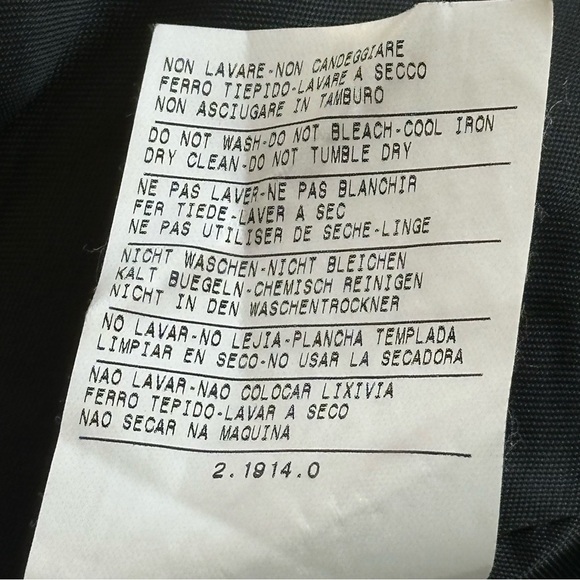 NON LAVARE-NON CANDEGGIARE
FERRO TIEPIDO-LAVARE A SECCO
NON ASCIUGARE IN TAMBURO
DO NOT WASH-DO NOT BLEACH-COOL IRON
DRY CLEAN-DO NOT TUMBLE DRY
NE PAS LAVER-NE PAS BLANCHIR
FER TIEDE-LAVER A SEC
NE PAS UTILISER DE SECHE-LINGE
NICHT WASCHEN-NICHT BLEICHEN
KALT BUEGELN-CHEMISCH REINIGEN
NICHT IN DEN WASCHENTROCKNER
NO LAVAR-NO LEJIA-PLANCHA TEMPLADA
LIMPIAR EN SECO-NO USAR LA SECADORA
NAO LAVAR-NAO COLOCAR LIXIVIA
FERRO TEPIDO-LAVAR A SECO
NAO SECAR NA MAQUINA
2.1914.0